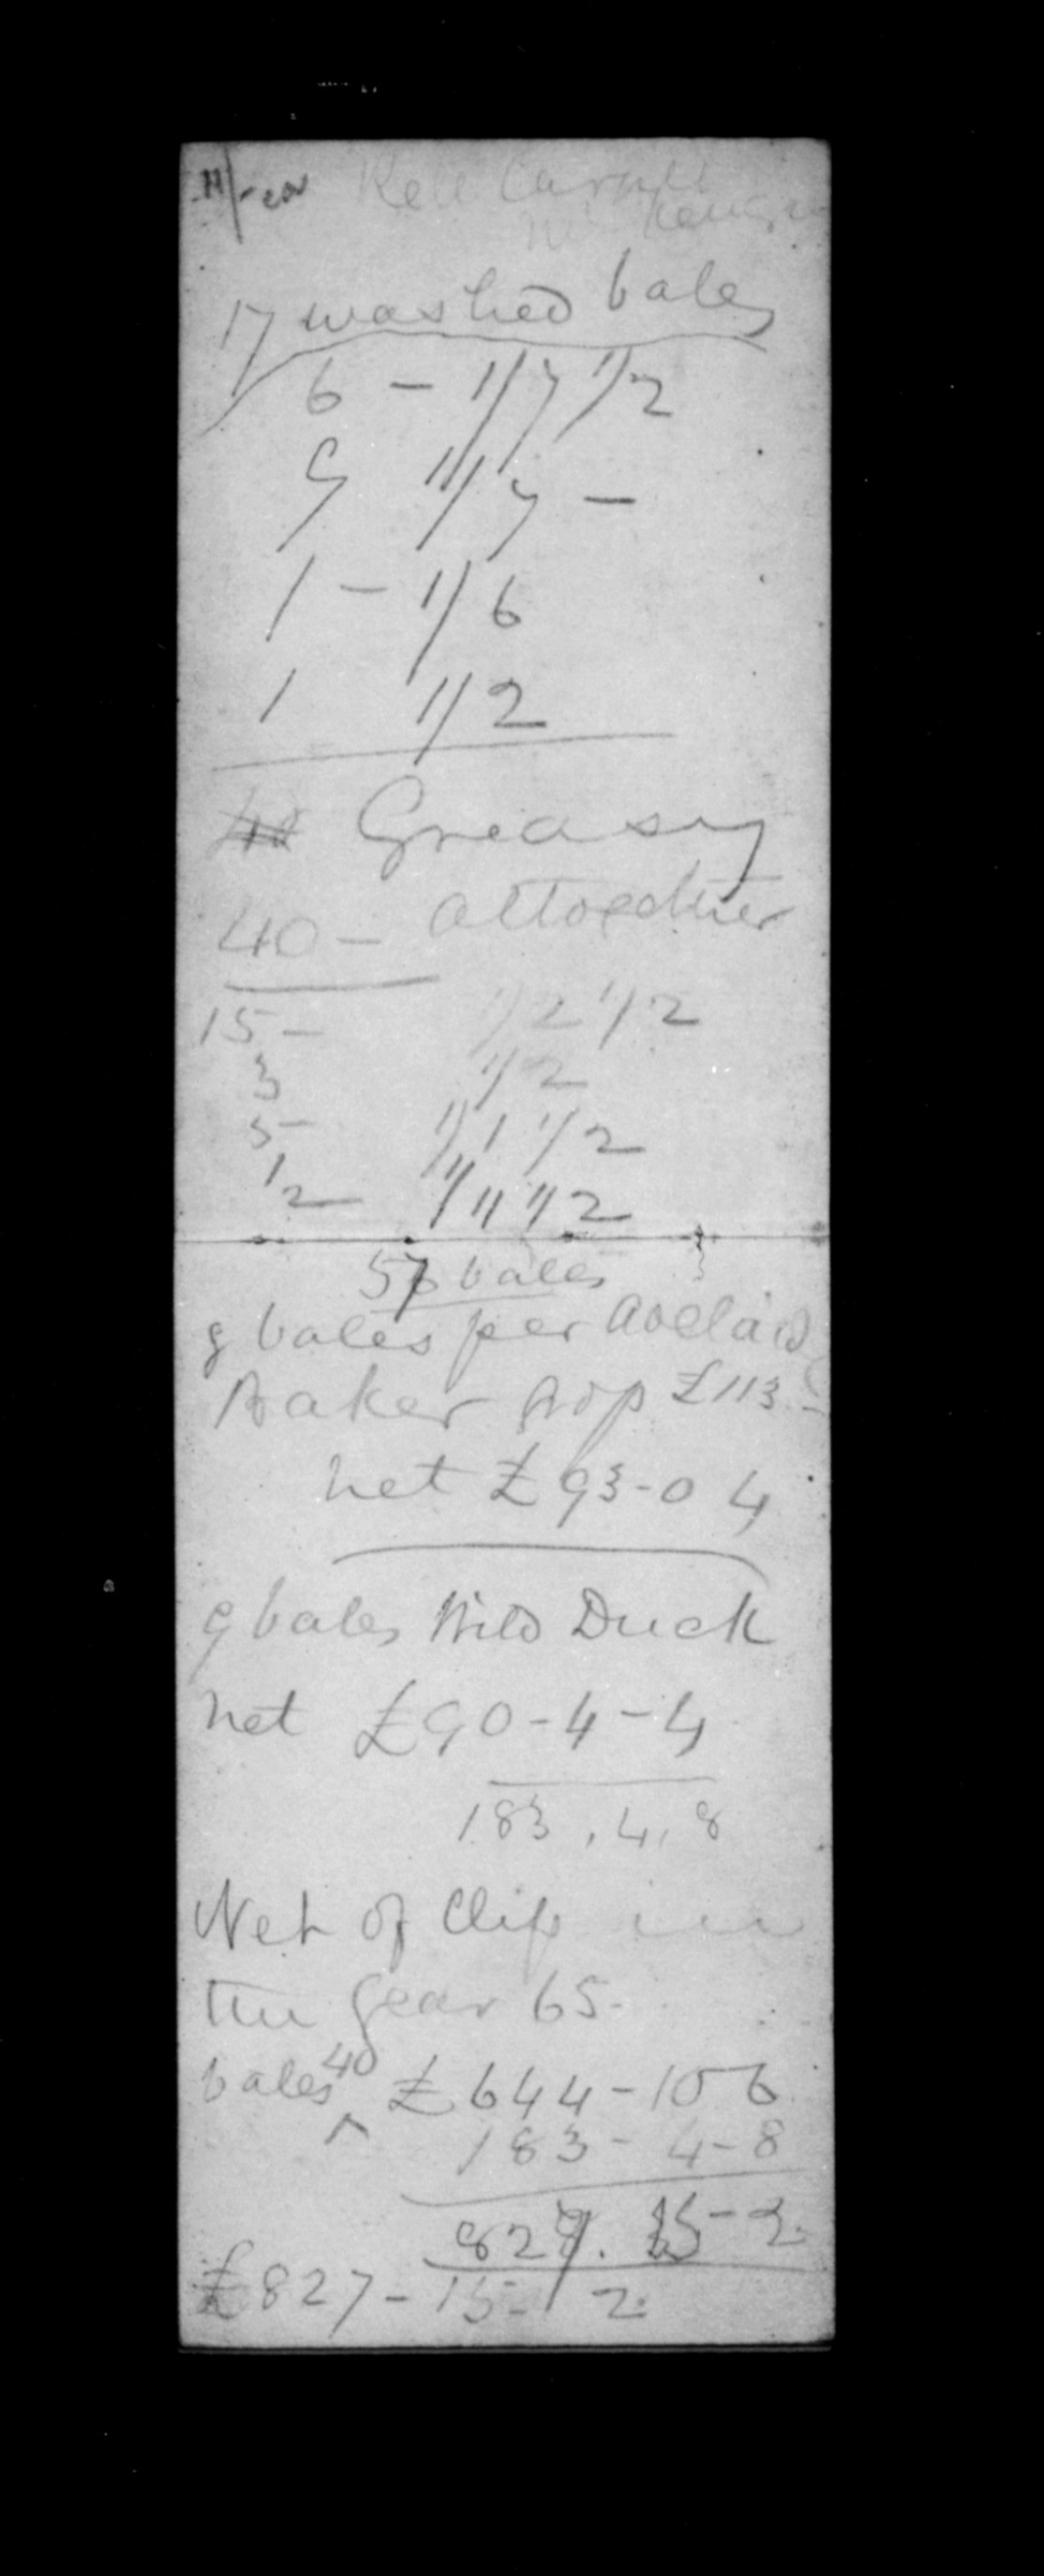 17 washed bales
6 - 1/7 1/2
9 1/7 -
1 - 1/6
1 1/2
Greasy
40 - altogether
15 - 1/2 1/2
3 1/2
5 1/1 1/2
1/2 1/11 1/2
57 bales
9 bales per Adelaide
Baker £113 -
net £93-0 4
9 bales Wild Duck
net £90-4-4
183.4.8
Net of Clip
the year 65.
bales 40 £644-10 6
183-4-8
827. 15-2
£827-15-2